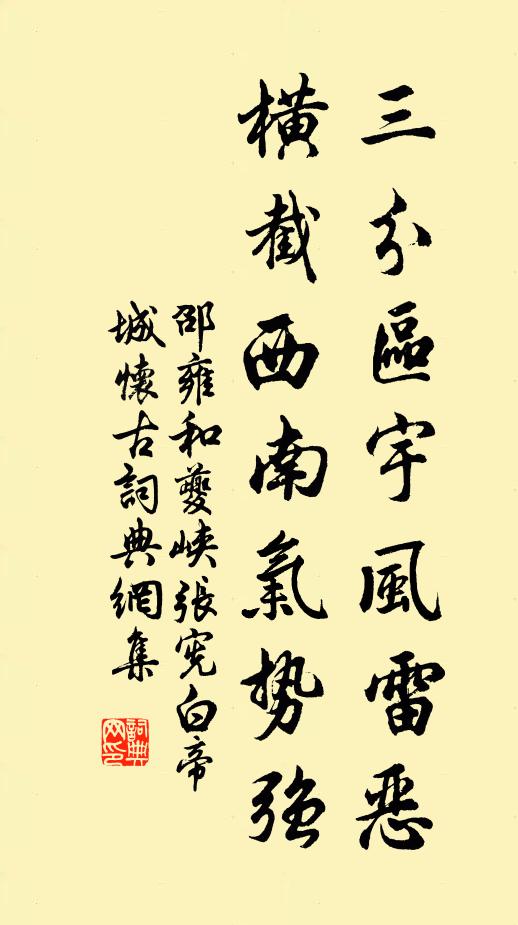 三分區宇風雷惡
橫截西南氣勢強
邵雍和夔峽張憲白帝
城懷古詞典網集
詞典網印